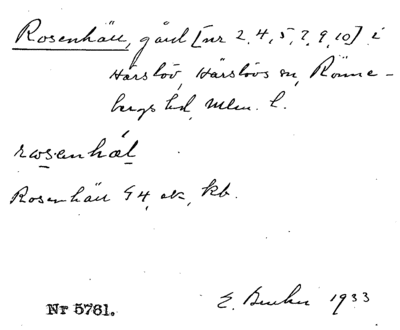 Rosenhäll, gård [nr 2, 4, 5, 7, 9, 10] i
Härslöv, Härslövs sn, Rönne-
bergs hd, Mlm. l.
rosenhäl
Rosenhäll G4, ek, kb.
Nr 5781. E. 1933